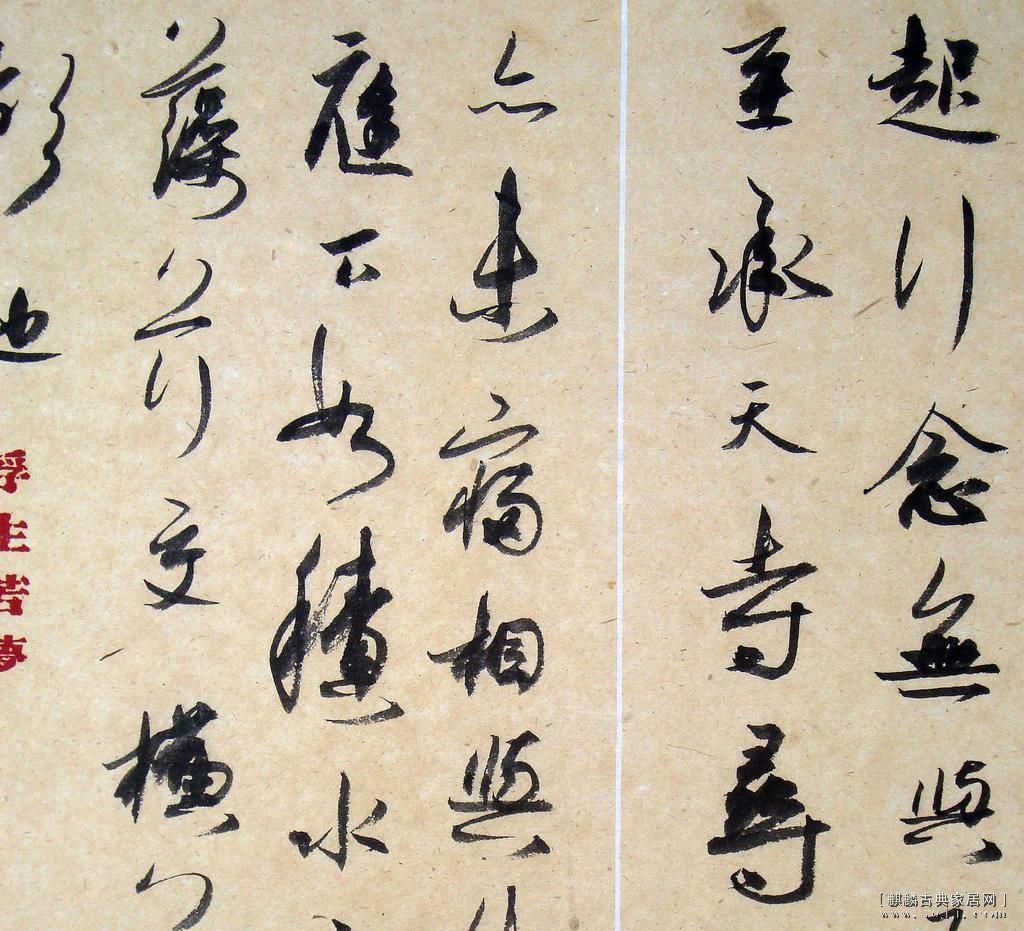 起行念無與
至承天寺尋
亦未寢相與
庭下如積水
藻荇交橫
影也
浮生若夢
[麒麟古典家居网]